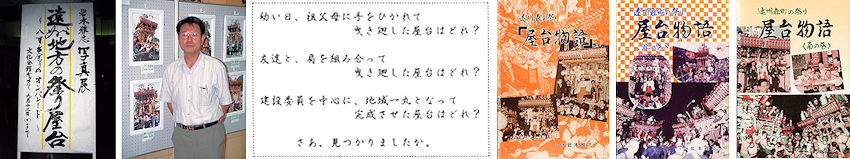 岩本雅之 写真展
遠州地方の祭り屋台
幼い日、祖父母に手をひかれて
曳き廻した屋台はどれ？
友達と、肩を組み合って
曳き廻した屋台はどれ？
建設委員を中心に、地域一丸となって
完成させた屋台はどれ？
さあ、見つかりましたか。
遠州森町の祭り
「屋台物語」
遠州森町の祭り
屋台物語
遠州森町の祭り
屋台物語